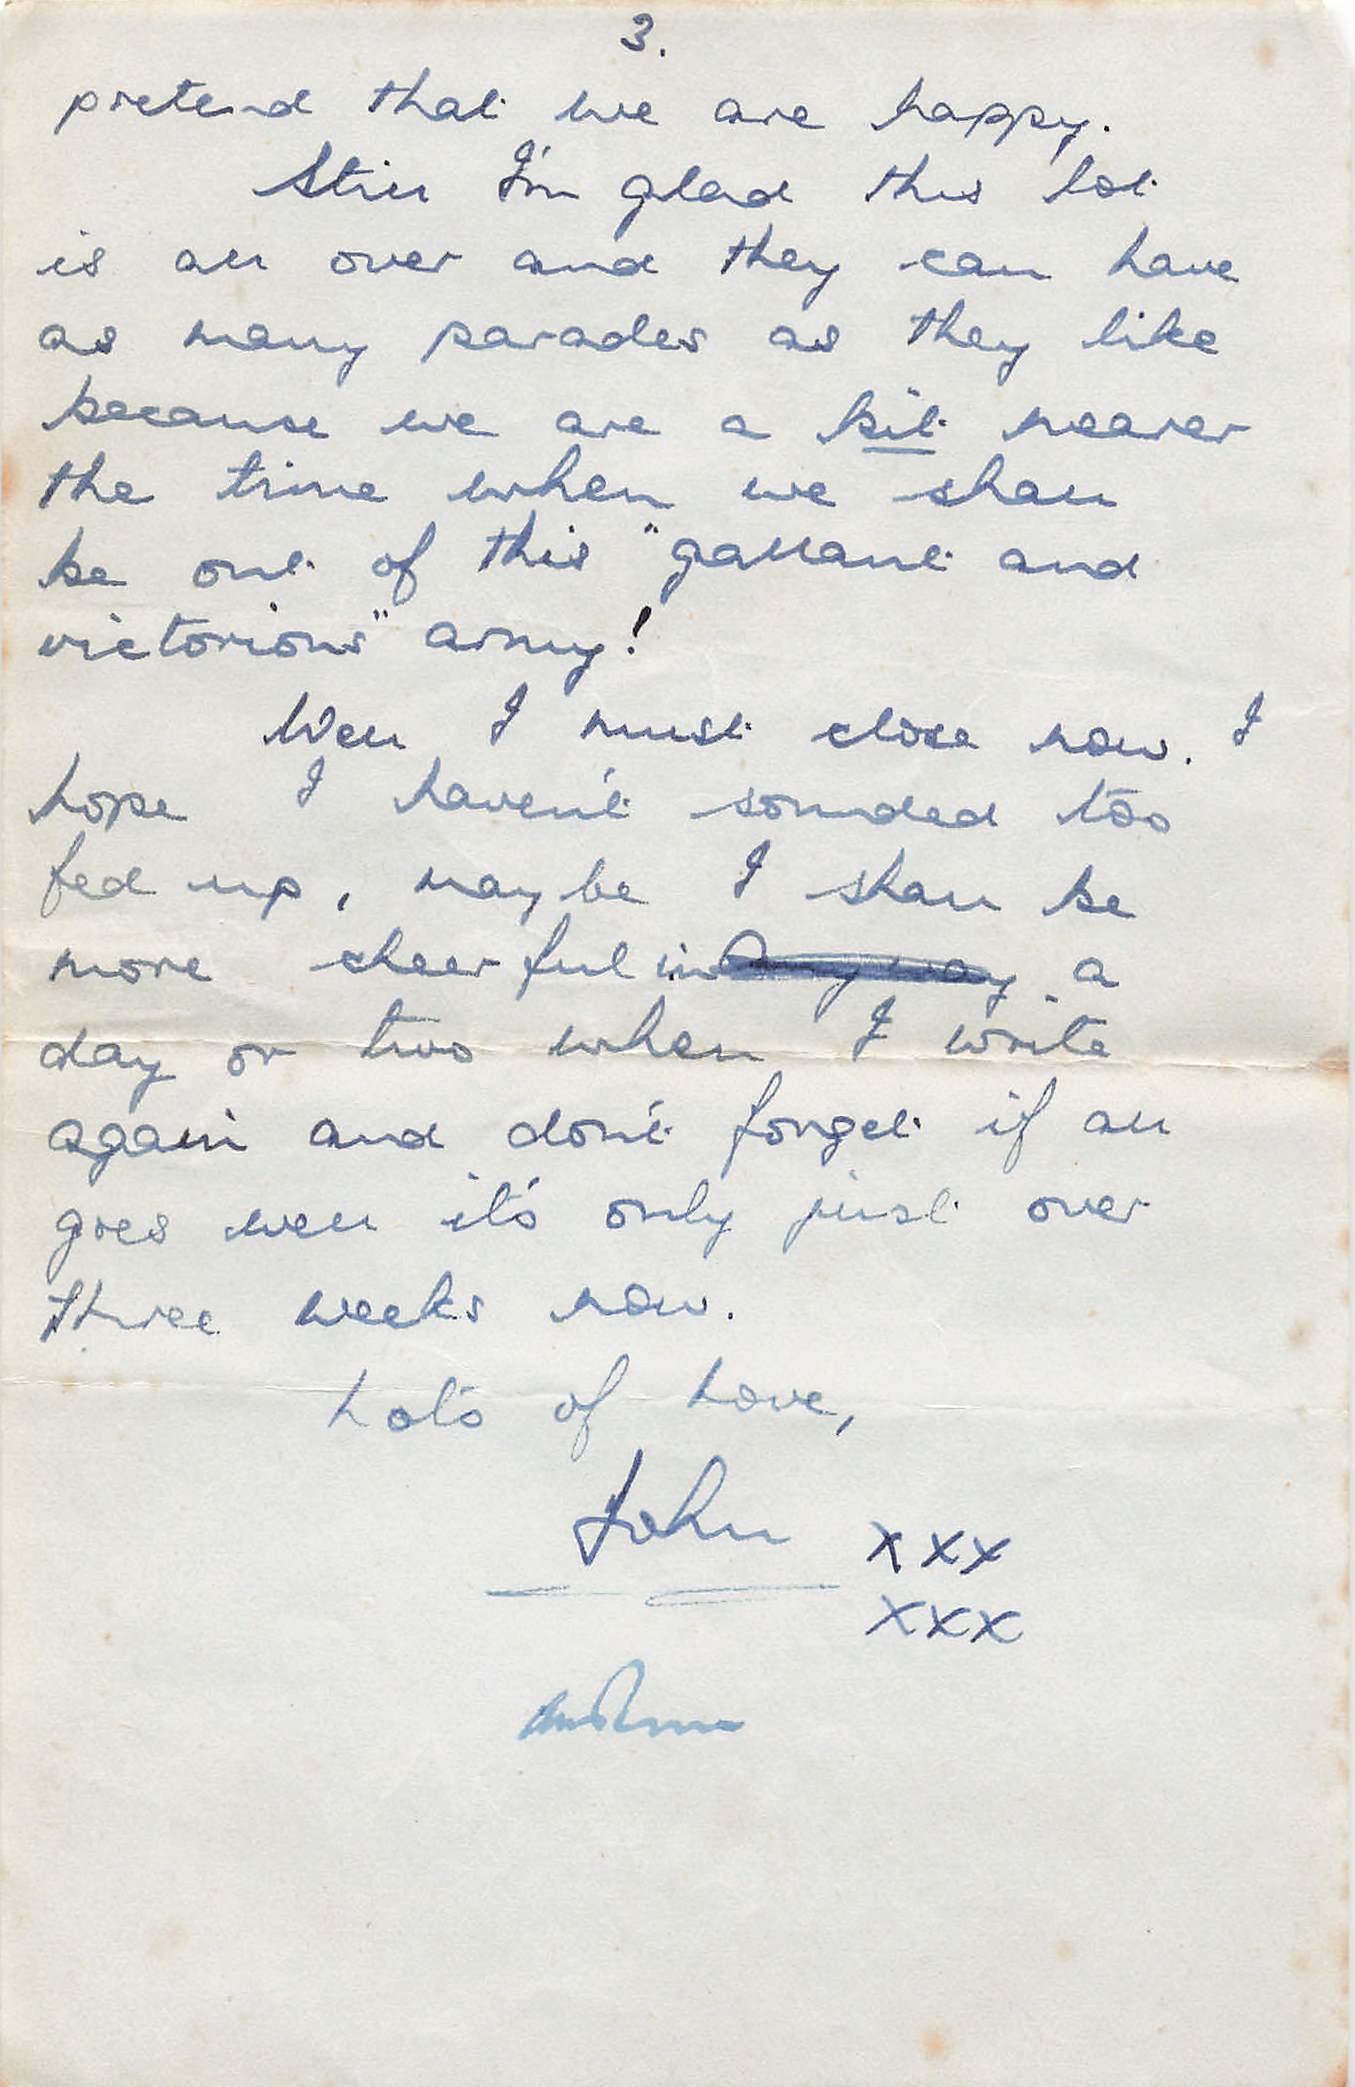 3.
pretend that we are happy.
Still I'm glad this lot
is all over and they can have
as many parades as they like
because we are a bit nearer
the time when we shall
be out of this "gallant and
victorious" army!
Well I must close now. I
hope I haven't sounded too
fed up, maybe I shall be
more cheerful in anyway a
day or two when I write
again and don't forget if all
goes well it's only just over
three weeks now.
Lots of Love,
John xxx
xxx